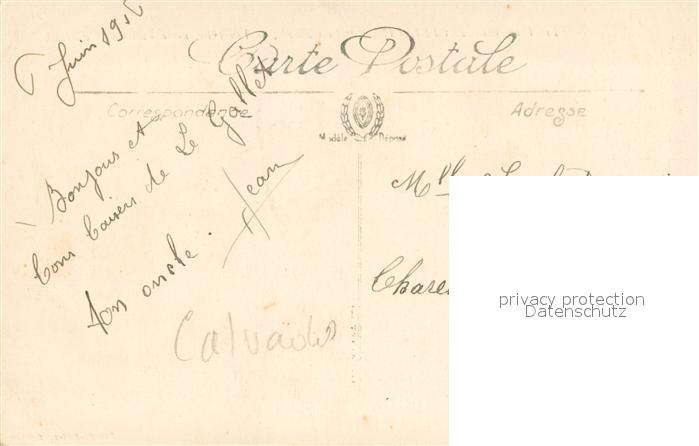 Carte Postale
Correspondance
Adresse
Modèle Déposé
6 Juin
Bonjour et
bons baisers de Le
ton oncle. Jean
Calvados
Mlle
privacy protection
Datenschutz